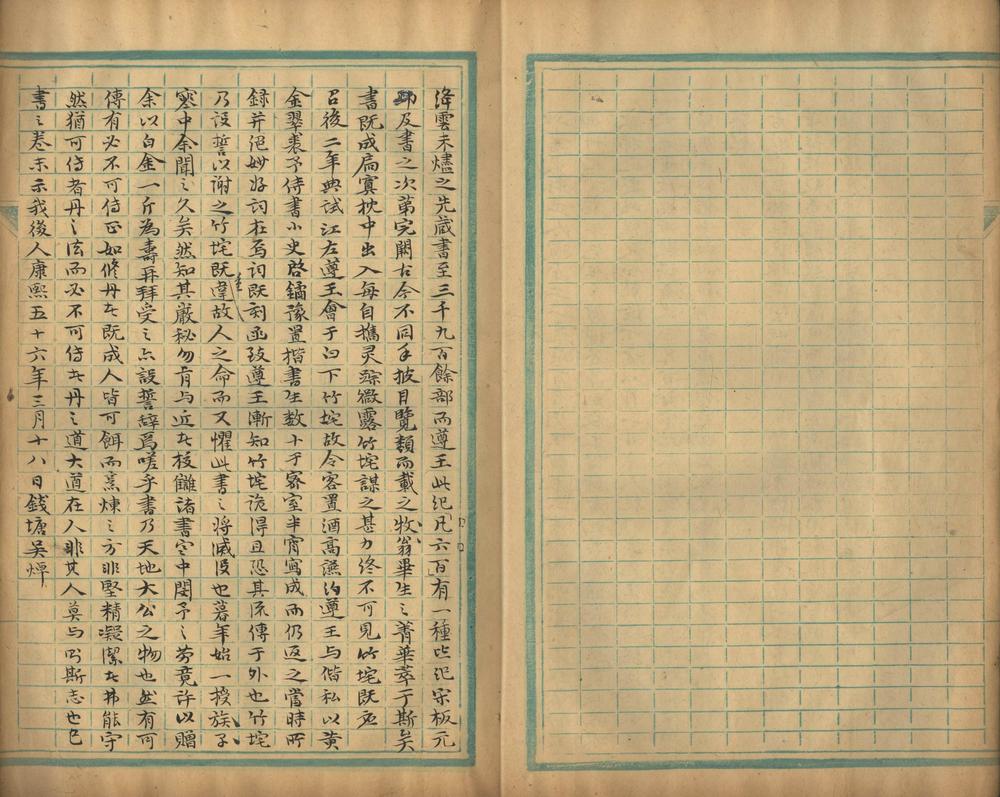 絳雲未燼之先藏書至三千九百餘部而遵王此記凡六百有一種皆記宋板元
鈔及書之次第完闕古今不同手披目覽類而載之牧翁畢生之菁華萃于斯矣
書既成扃寘枕中出入每自攜灵蹤微露竹垞謀之甚力終不可見竹垞既应
召後二年典試江左遵王會于白下竹垞故令客置酒高讌約遵王与偕私以黃
金翠裘予侍書小史啓鐍豫置楷書生数十于密室半宵寫成而仍返之當時所
録并絕妙好词在焉词既刻函致遵王漸知竹垞诡得且恐其流傳于外也竹垞
乃设誓以謝之竹垞既重違故人之命而又懼此書之将滅没也暮年始一授族子
寒中余聞之久矣然知其嚴秘勿肯与近七校讎諸書寒中閔予之劳竟许以贈
余以白金一斤為壽再拜受之亦設誓辞焉嗟乎書乃天地大公之物也然有可
傳有必不可傳正如修丹者既成人皆可餌而烹煉之方非堅精凝潔者弗能守
然猶可傳者丹之法而必不可傳者丹之道大道在人非其人莫与则斯志也已
書之卷末示我後人康熙五十六年三月十八日錢塘吳焯